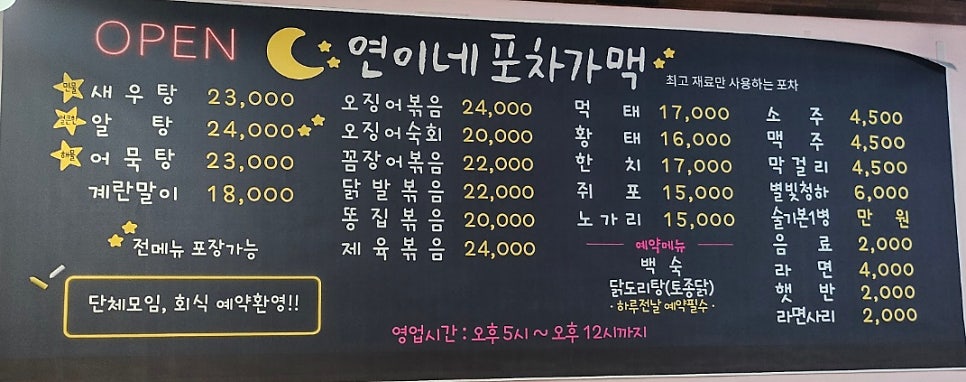 OPEN
연이네 포차가맥
최고 재료만 사용하는 포차
새우탕 23,000
알탕 24,000
해물 어묵탕 23,000
계란말이 18,000
전메뉴 포장가능
단체모임, 회식 예약환영!!
오징어볶음 24,000
오징어숙회 20,000
꼼장어볶음 22,000
닭발볶음 22,000
똥집볶음 20,000
제육볶음 24,000
먹태 17,000
황태 16,000
한치 17,000
쥐포 15,000
노가리 15,000
예약메뉴
백숙
닭도리탕(토종닭)
·하루전날 예약필수·
소주 4,500
맥주 4,500
막걸리 4,500
별빛청하 6,000
술기본1병 만원
음료 2,000
라면 4,000
햇반 2,000
라면사리 2,000
영업시간 : 오후 5시 ~ 오후 12시까지